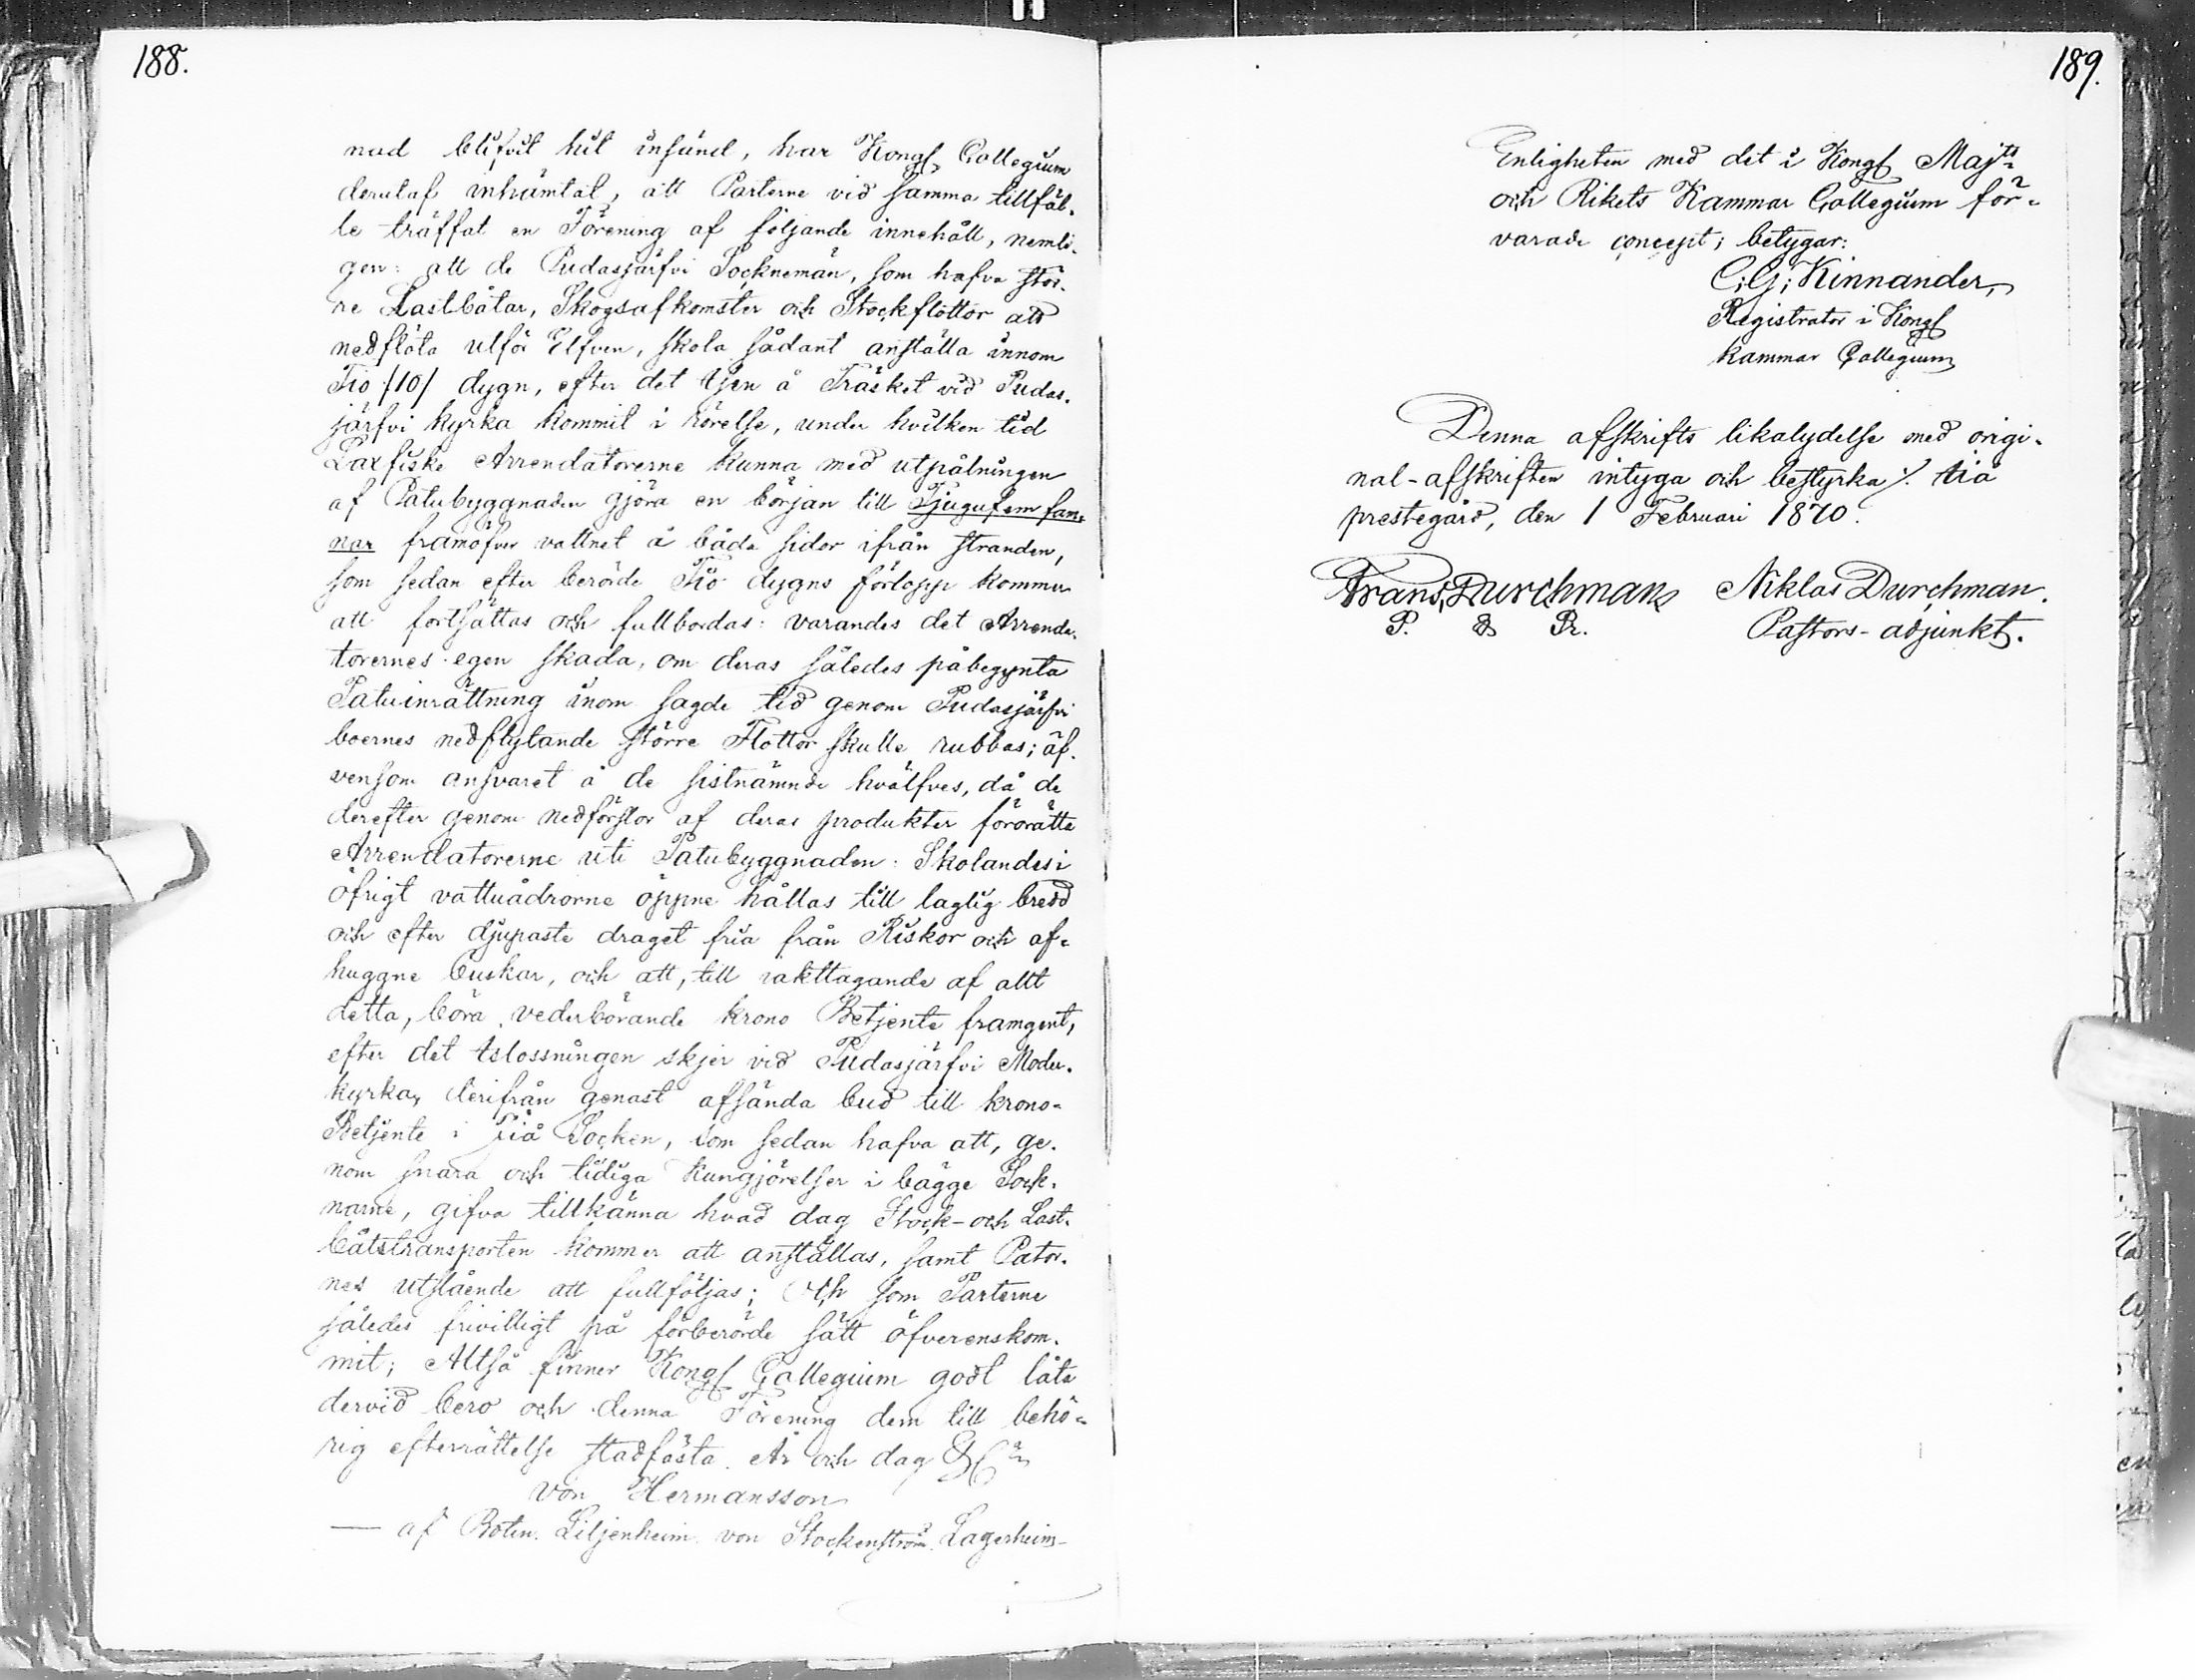 188.
nad blifvit hit insänd, har Kongl Collegium
derutaf inhämtat, att Parterne vid samma tillfäl-
le träffat en Förening af följande innehåll, nemli-
gen: att de Pudasjärfvi Socknemän, som hafva stör-
re Lastbåtar, Skogsafkomster och Stockflottor att
nedflöta utför Elfven, skola sådant anställa innom
Tio /10/ dygn, efter det Isen å Träsket vid Pudas-
järfvi kyrka kommit i rörelse, under hvilken tid
Laxfiske Arrendatorerne kunna med utpålningen
af Patubyggnaden gjöra en början till Tjugufem fam-
nar framöfver vattnet å båda sidor ifrån stranden,
som sedan efter berörde Tio dygns förlopp kommer
att fortsättas och fullbordas: varandes det Arrenda-
torernes egen skada, om deras således påbegynta
Patuinrättning inom sagde tid genom Pudasjärfvi
boernes nedflytande större Flottor skulle rubbas; äf-
vensom ansvaret å de sistnämnde hvälfves, då de
derefter genom nedförslor af deras produkter förorätta
Arrendatorerne uti Patubyggnaden: Skolandes i
öfrigt vattuådrorne öppne hållas till laglig bredd
och efter djupaste draget fria från Riskor och af-
huggne buskar, och att, till iakttagande af allt
detta, böra vederbörande krono Betjente framgent,
efter det Islossningen skjer vid Pudasjärfvi Moder-
kyrka, derifrån genast afsända bud till krono-
Betjente i Iiå Socken, som sedan hafva att, ge-
nom snara och tidiga kungjörelser i bägge Sock-
narne, gifva tillkänna hvad dag Stock- och Last-
båtstransporten kommer att anställas, samt Pator-
nes utslående att fullföljas; Och som Parterne
således frivilligt på förberörde sätt öfverenskom-
mit; Altså finner Kongl Collegium godt låta
dervid bero och denna Förening dem till behö-
rig efterrättelse stadfästa. År och dag
von Hermansson
— af Botin. Liljenheim. von Stockenström. Lagerheim-
189.
Enligheten med det i Kongl Majts
och Rikets Kammar Collegium för-
varade concept; betygar:
C; G; Kinnander,
Registrator i Kongl
Kammar Collegium
Denna afskrifts likalydelse med origi-
nal-afskriften intyga och bestyrka ⁒ Iiå
prestegård, den 1 Februari 1870.
Frans Durchman Niklas Durchman.
P. & Pr. Pastors-adjunkt.